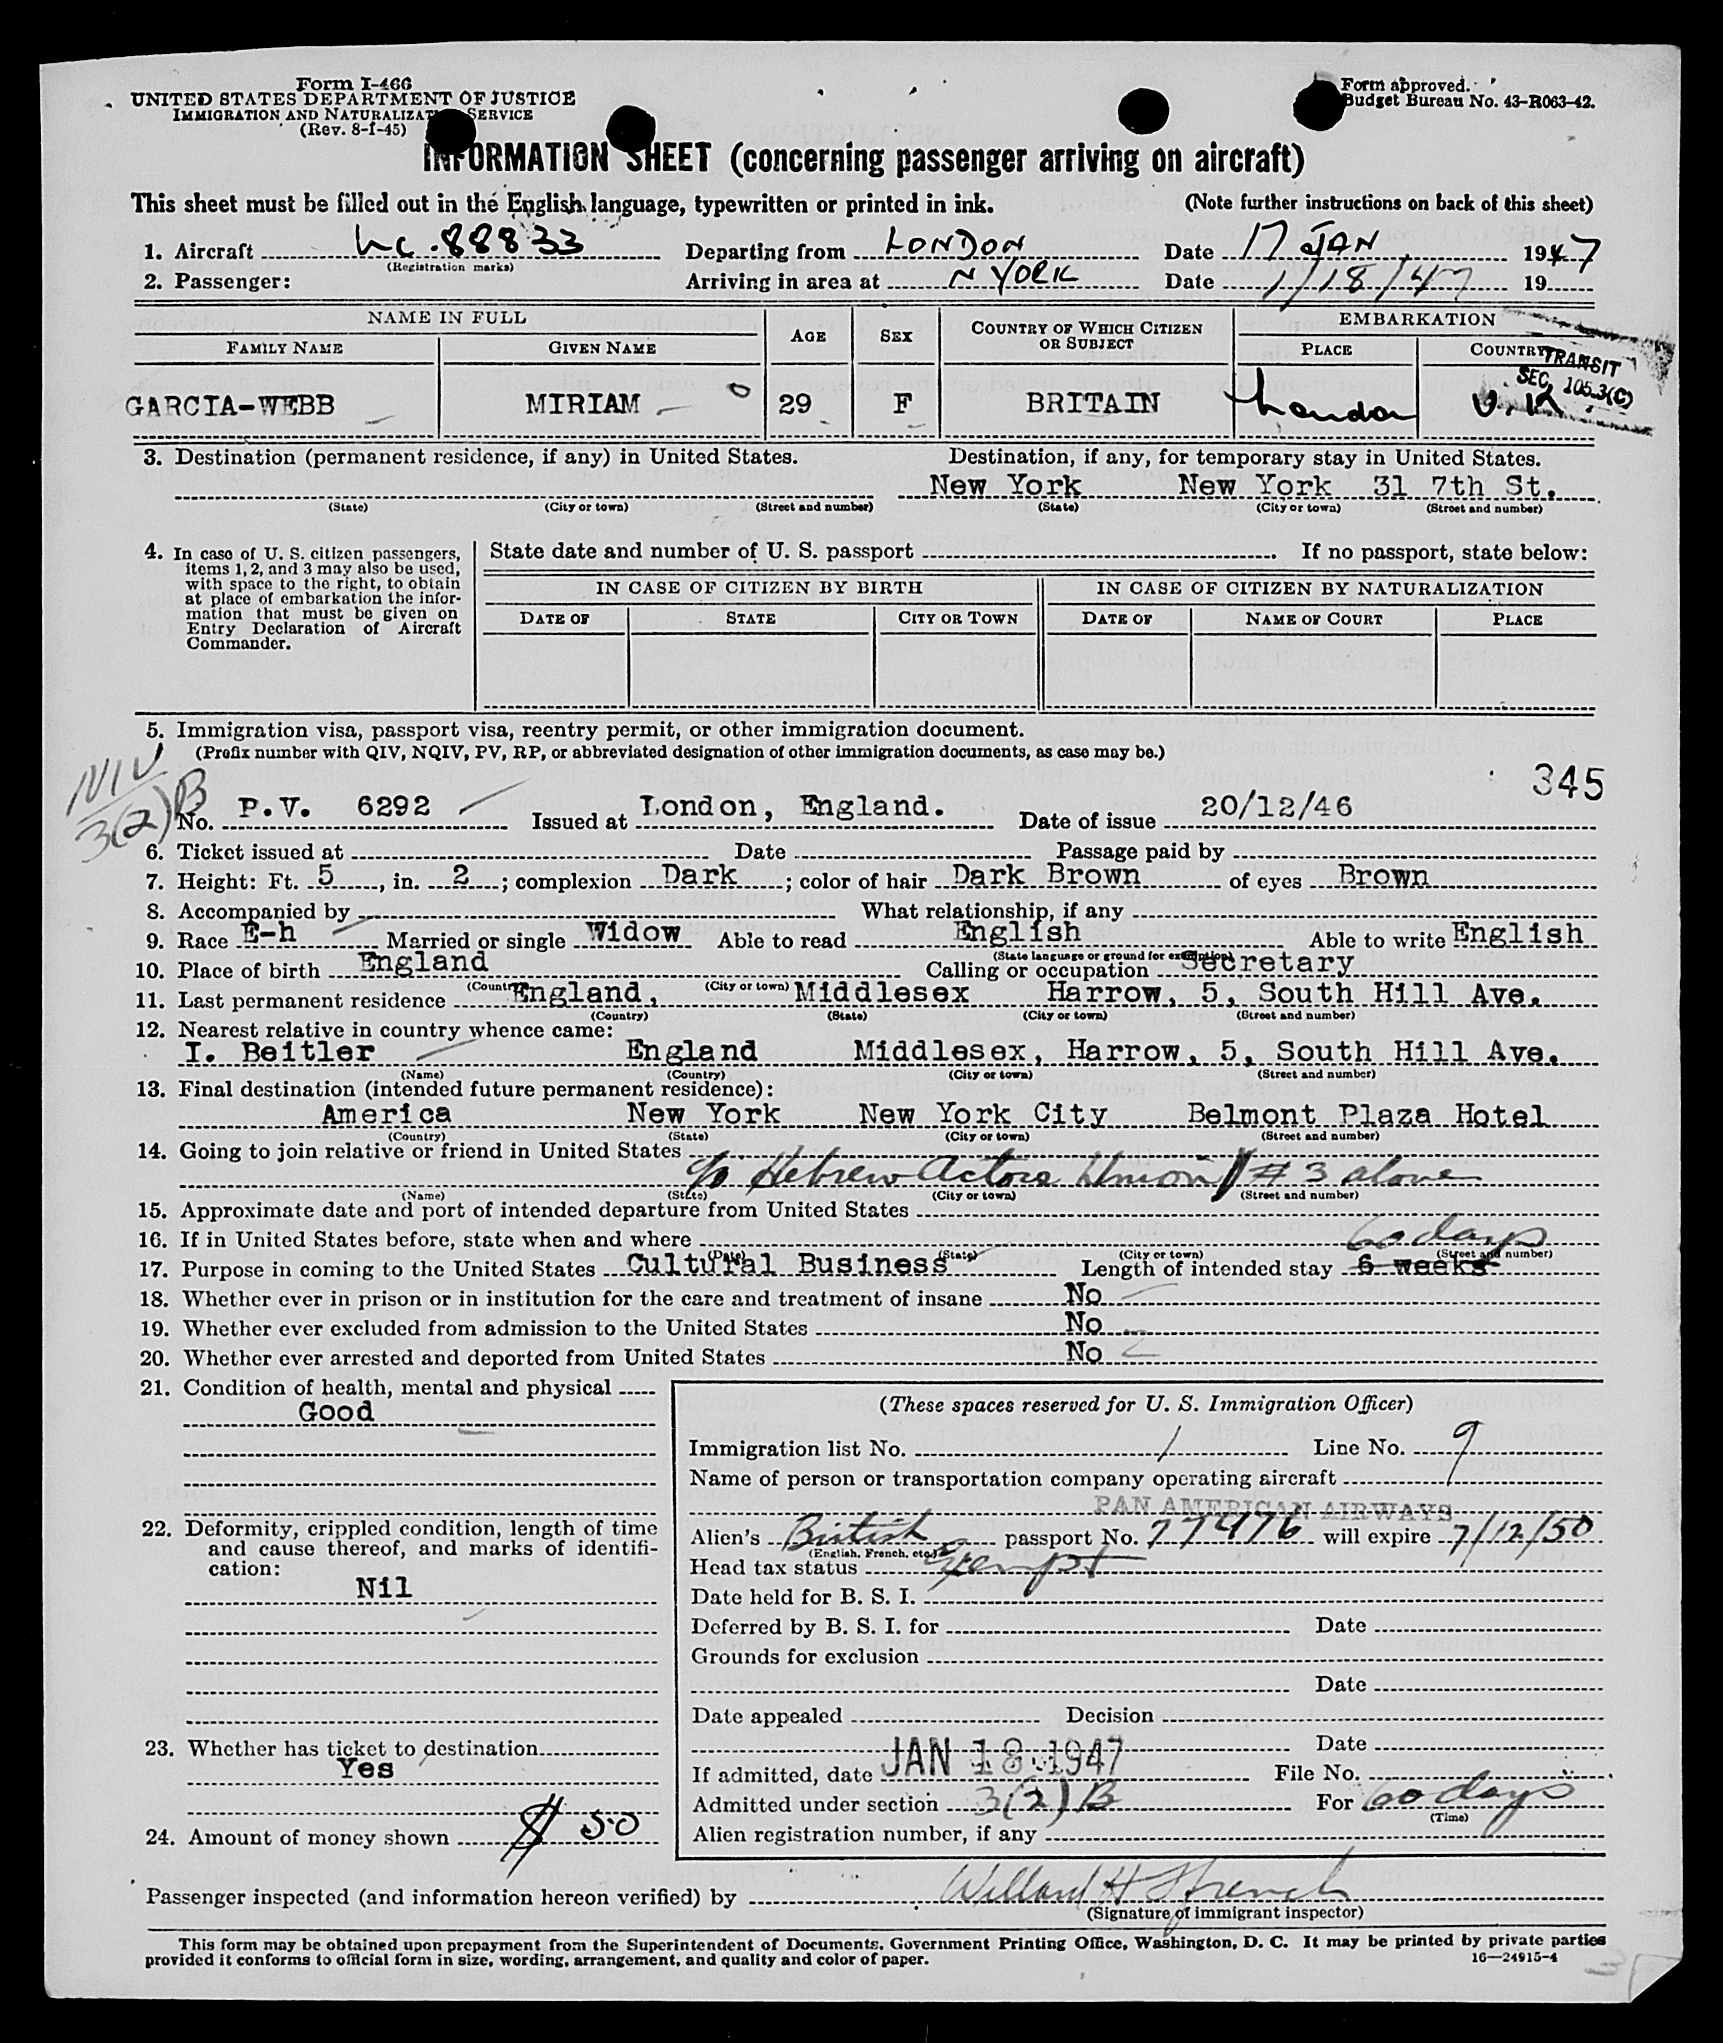 Form I-466
UNITED STATES DEPARTMENT OF JUSTICE
IMMIGRATION AND NATURALIZATION SERVICE
(Rev. 8-1-45)
Form approved.
Budget Bureau No. 43-R063-42.
INFORMATION SHEET (concerning passenger arriving on aircraft)
This sheet must be filled out in the English language, typewritten or printed in ink. (Note further instructions on back of this sheet)
1. Aircraft NC.88833 Departing from LONDON Date 17 JAN 1947
(Registration marks)
2. Passenger: Arriving in area at N YORK Date 1/18/47 19
NAME IN FULL AGE SEX COUNTRY OF WHICH CITIZEN OR SUBJECT EMBARKATION
FAMILY NAME GIVEN NAME PLACE COUNTRY
TRANSIT
SEC. 105.3(C)
GARCIA-WEBB MIRIAM 29 F BRITAIN London U.K.
3. Destination (permanent residence, if any) in United States. Destination, if any, for temporary stay in United States.
New York New York 31 7th St.
(State) (City or town) (Street and number) (State) (City or town) (Street and number)
4. In case of U. S. citizen passengers, items 1, 2, and 3 may also be used, with space to the right, to obtain at place of embarkation the information that must be given on Entry Declaration of Aircraft Commander.
State date and number of U. S. passport . If no passport, state below:
IN CASE OF CITIZEN BY BIRTH IN CASE OF CITIZEN BY NATURALIZATION
DATE OF STATE CITY OR TOWN DATE OF NAME OF COURT PLACE
5. Immigration visa, passport visa, reentry permit, or other immigration document.
(Prefix number with QIV, NQIV, PV, RP, or abbreviated designation of other immigration documents, as case may be.)
NIV
3(2)B
345
No. P.V. 6292 Issued at London, England. Date of issue 20/12/46
6. Ticket issued at Date Passage paid by
7. Height: Ft. 5, in. 2; complexion Dark; color of hair Dark Brown of eyes Brown
8. Accompanied by What relationship, if any
9. Race E-h Married or single Widow Able to read English Able to write English
(State language or ground for exemption)
10. Place of birth England Calling or occupation Secretary
(Country) (City or town)
11. Last permanent residence England, Middlesex Harrow, 5, South Hill Ave.
(Country) (State) (City or town) (Street and number)
12. Nearest relative in country whence came:
I. Beitler England Middlesex, Harrow, 5, South Hill Ave.
(Name) (Country) (City or town) (Street and number)
13. Final destination (intended future permanent residence):
America New York New York City Belmont Plaza Hotel
(Country) (State) (City or town) (Street and number)
14. Going to join relative or friend in United States
c/o Hebrew Actors Union # 3 above
(Name) (State) (City or town) (Street and number)
15. Approximate date and port of intended departure from United States
16. If in United States before, state when and where
60 days
(Date) (State) (City or town) (Street and number)
17. Purpose in coming to the United States Cultural Business Length of intended stay 6 weeks
18. Whether ever in prison or in institution for the care and treatment of insane No
19. Whether ever excluded from admission to the United States No
20. Whether ever arrested and deported from United States No
21. Condition of health, mental and physical
Good
22. Deformity, crippled condition, length of time and cause thereof, and marks of identification:
Nil
23. Whether has ticket to destination
Yes
24. Amount of money shown $ 50
(These spaces reserved for U. S. Immigration Officer)
Immigration list No. 1 Line No. 9
Name of person or transportation company operating aircraft
PAN AMERICAN AIRWAYS
Alien's British passport No. 77476 will expire 7/12/50
(English, French, etc.)
Head tax status Exempt
Date held for B. S. I.
Deferred by B. S. I. for Date
Grounds for exclusion
Date
Date appealed Decision
Date
If admitted, date JAN 18 1947 File No.
Admitted under section 3(2)B For 60 days
(Time)
Alien registration number, if any
Passenger inspected (and information hereon verified) by Willard H French
(Signature of immigrant inspector)
This form may be obtained upon prepayment from the Superintendent of Documents, Government Printing Office, Washington, D. C. It may be printed by private parties
provided it conforms to official form in size, wording, arrangement, and quality and color of paper. 16—24915-4